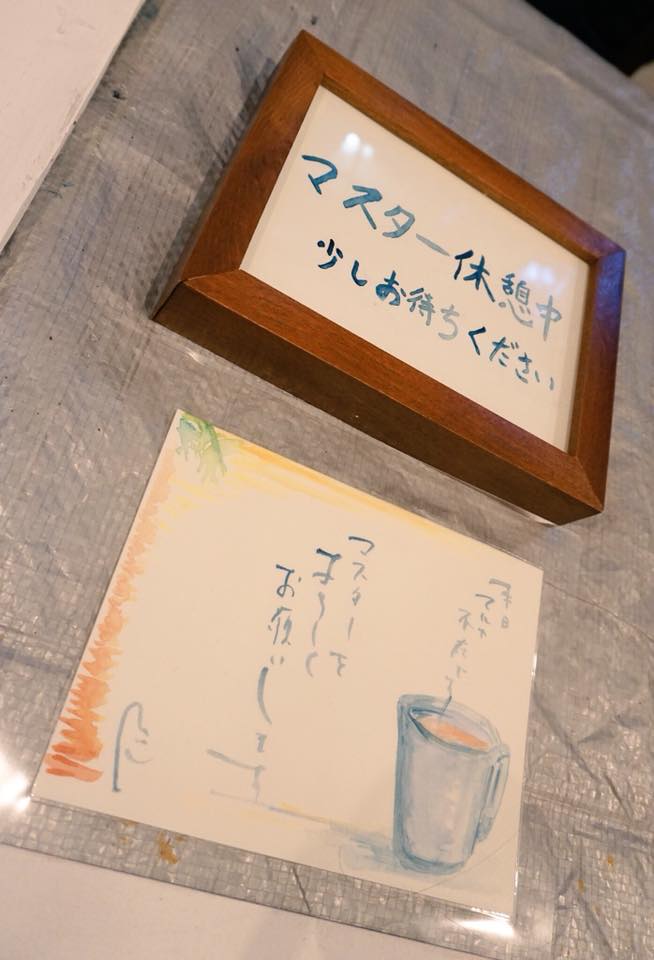 マスター休憩中
少しお待ちください
本日
マスターを
よろしく
お願いします